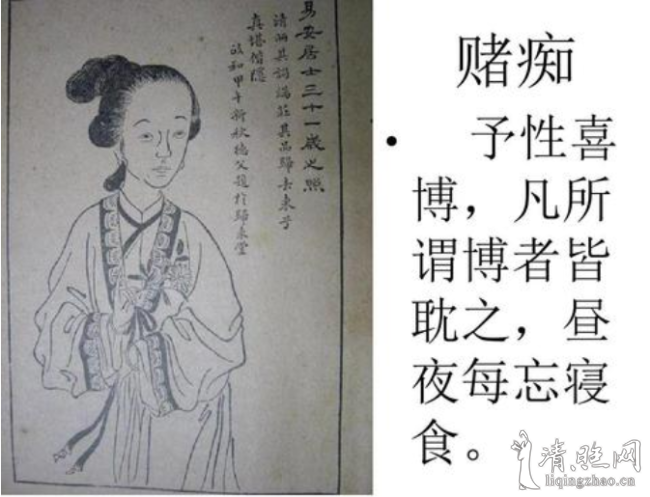 易安居士三十一歲之照
清麗其詞端莊其品歸去來兮
真堪偕隱
政和甲午新秋德父題於歸來堂
赌痴
• 予性喜
博，凡所
谓博者皆
耽之，昼
夜每忘寝
食。
清照网
liqingzhao.cn